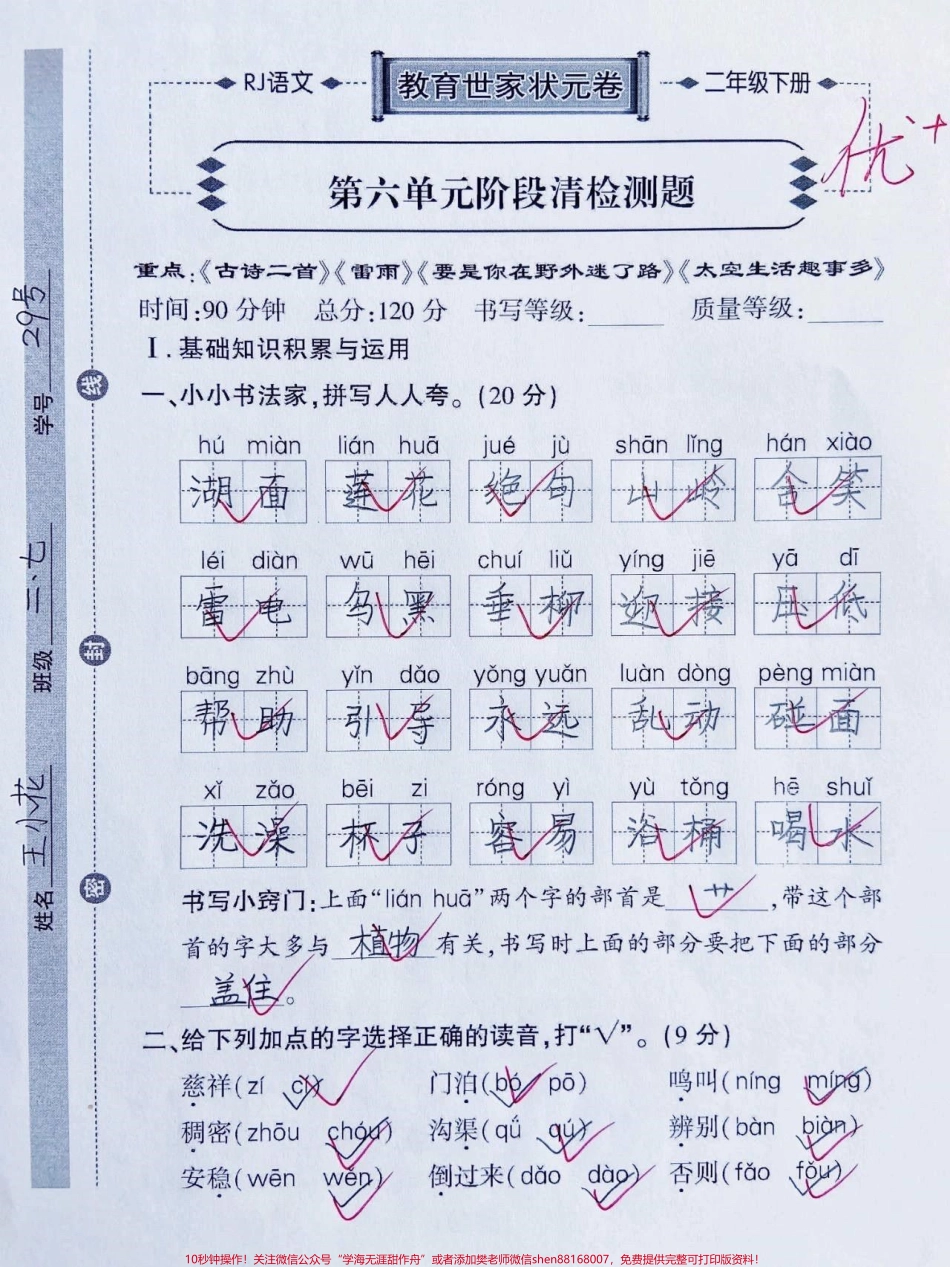 RJ语文 教育世家状元卷 二年级下册
优+
第六单元阶段清检测题
重点:《古诗二首》《雷雨》《要是你在野外迷了路》《太空生活趣事多》
时间:90分钟 总分:120分 书写等级:______ 质量等级:______
Ⅰ.基础知识积累与运用
一、小小书法家,拼写人人夸。(20分)
hú miàn lián huā jué jù shān lǐng hán xiào
湖面 莲花 绝句 山岭 含笑
léi diàn wū hēi chuí liǔ yíng jiē yā dī
雷电 乌黑 垂柳 迎接 压低
bāng zhù yǐn dǎo yǒng yuǎn luàn dòng pèng miàn
帮助 引导 永远 乱动 碰面
xǐ zǎo bēi zi róng yì yù tǒng hē shuǐ
洗澡 杯子 容易 浴桶 喝水
书写小窍门:上面“lián huā”两个字的部首是 艹 ,带这个部
首的字大多与 植物 有关,书写时上面的部分要把下面的部分
盖住 。
二、给下列加点的字选择正确的读音,打“√”。(9分)
慈祥(zí cí) 门泊(bó pō) 鸣叫(níng míng)
稠密(zhōu chóu) 沟渠(qǘ qú) 辨别(bàn biàn)
安稳(wēn wěn) 倒过来(dǎo dào) 否则(fǎo fǒu)
学号 29号
班级 二、七
姓名 王小花
线
封
密
10秒钟操作！关注微信公众号“学海无涯甜作舟”或者添加樊老师微信shen88168007，免费提供完整可打印版资料！